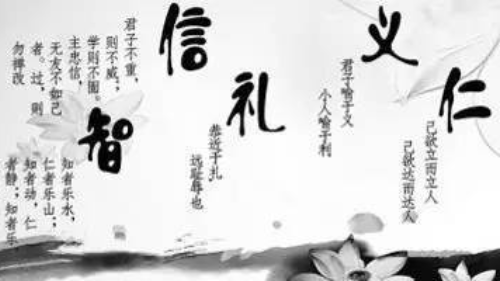 仁
己欲立而立人
己欲达而达人
义
君子喻于义
个人喻于利
礼
恭近于礼，
远耻辱也
信
君子不重，
则不威，
学则不固。
主忠信，
无友不如己
者。过，则
勿惮改
智
知者乐水，
仁者乐山；
知者动，仁
者静；知者乐